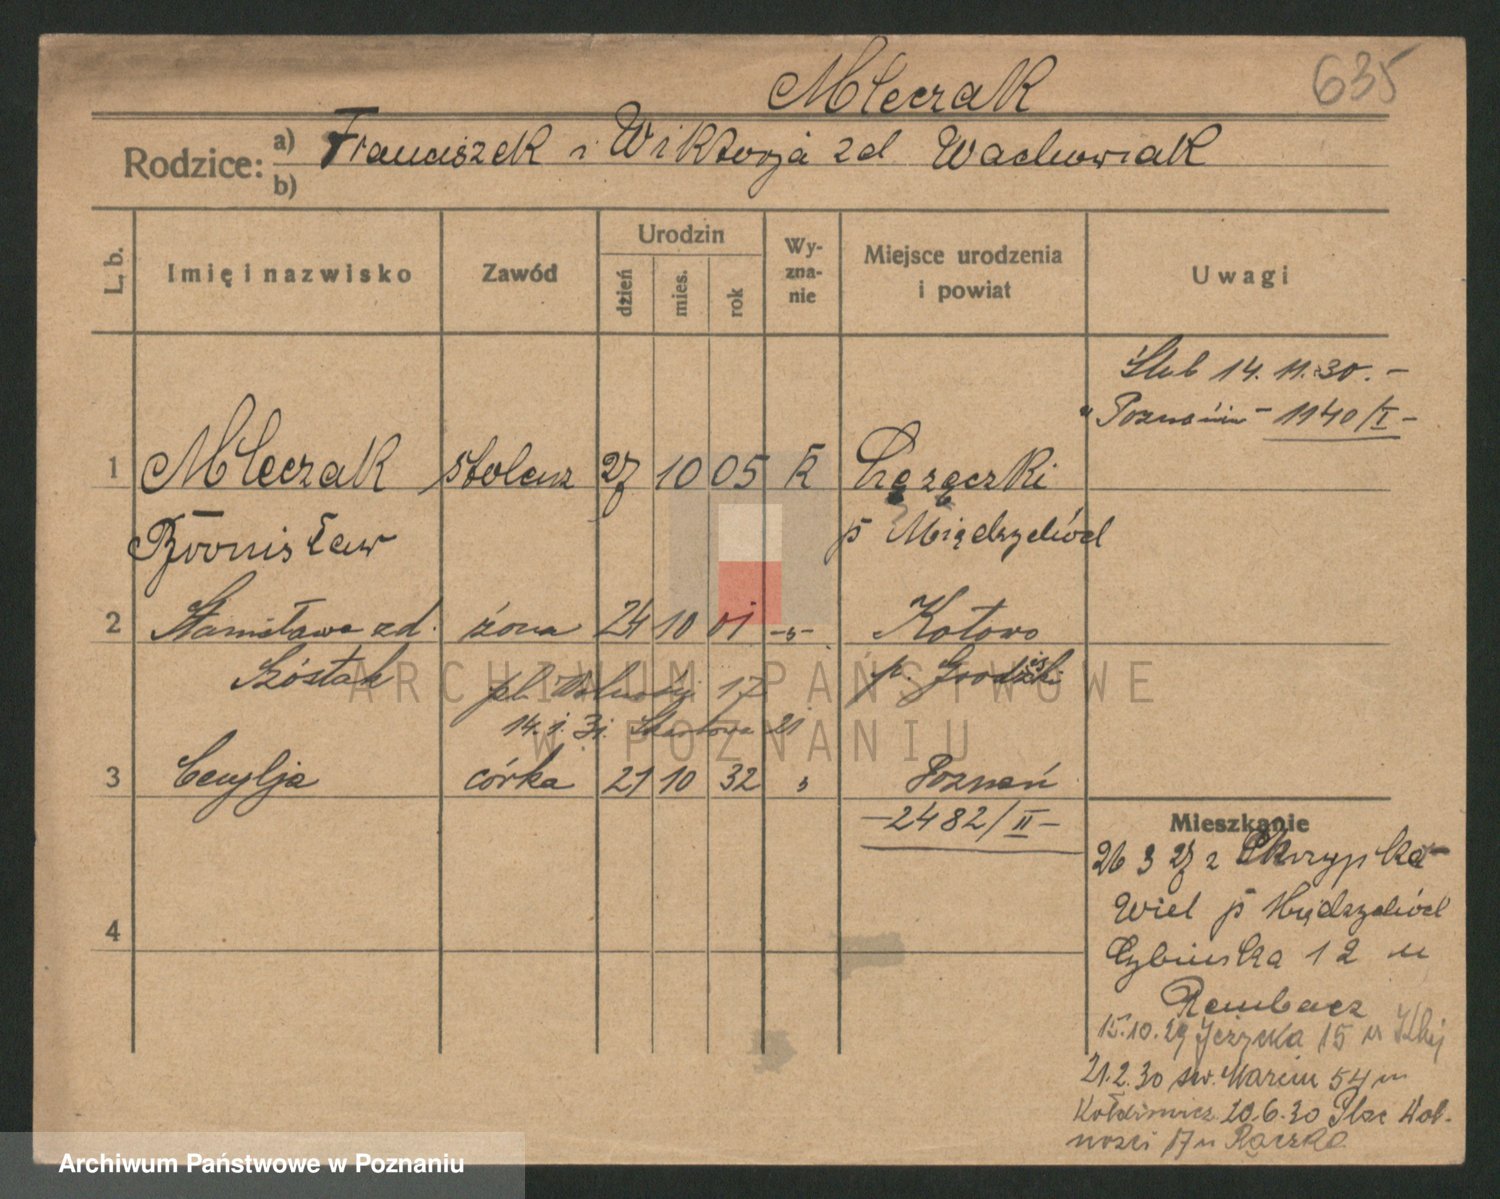 635
Mleczak
Rodzice: a) Franciszek i Wiktorja zd Wachowiak
b)
L. b.
Imię i nazwisko
Zawód
Urodzin
dzień
mies.
rok
Wy-
zna-
nie
Miejsce urodzenia
i powiat
Uwagi
Ślub 14. 11. 30. -
w Poznaniu - 1140/I -
1 Mleczak stolarz 27 10 05 K
Bronisław p Międzychód
2 Stanisława zd. żona 24 10 01 -"- Kotowo
Szóstak pl. Wolności 17 p. Grodzisk
14. 1. 31. 21
3 Cecylja córka 21 10 32 " Poznań
-2482/II-
4
Mieszkanie
26 3 27 z Skrzypka
Wiel p Międzychód
Cybińska 12 u
Rembacz
15.10.29 Jeżycka 15 u
21.2.30 św. Marcin 54 u
20.6.30 Plac Wol-
ności 17 u Rączka
ARCHIWUM PAŃSTWOWE
W POZNANIU
Archiwum Państwowe w Poznaniu